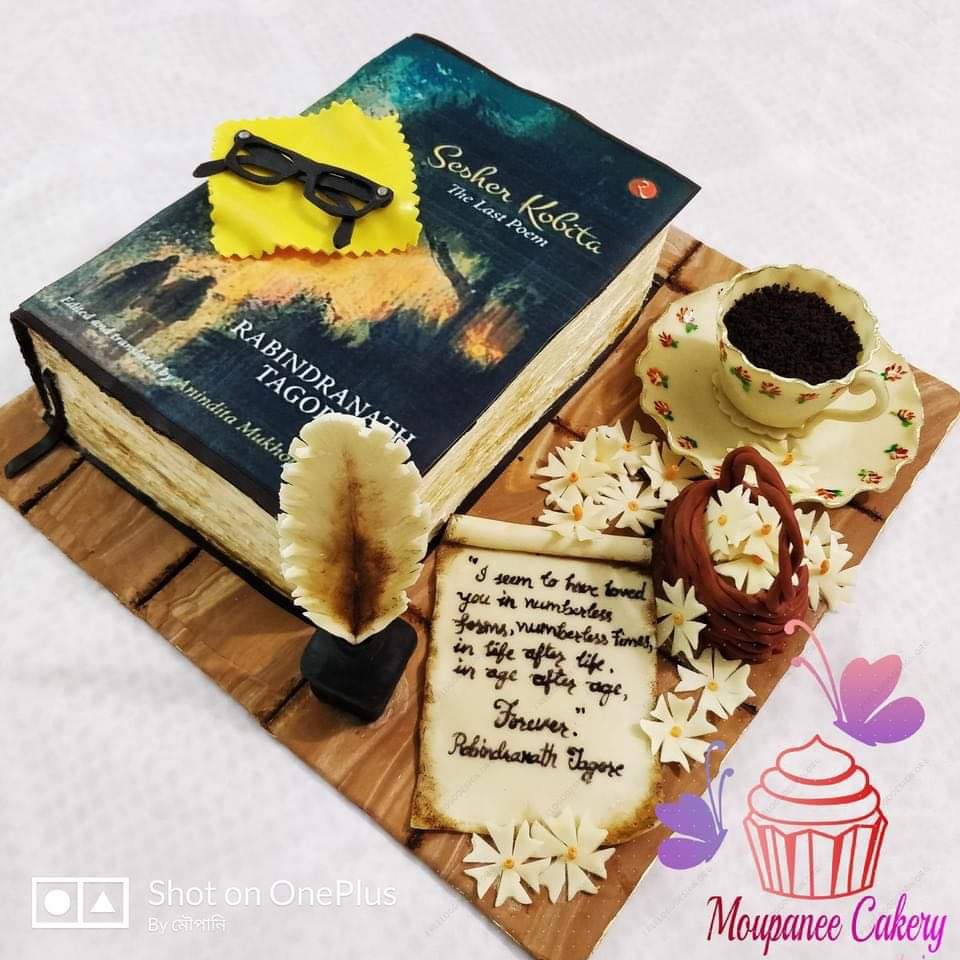 Sesher Kobita
The Last Poem
Edited and translated by Anindita Mukho
RABINDRANATH
TAGORE
"I seem to have loved
you in numberless
forms, numberless times,
in life after life,
in age after age,
Forever."
Rabindranath Tagore
Shot on OnePlus
By মৌপানি
Moupanee Cakery